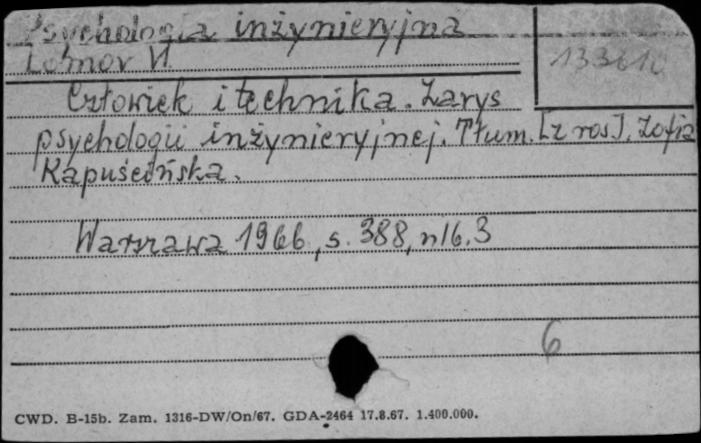 Psychologia inżynieryjna
Łomov N.
133610
Człowiek i technika. Zarys
psychologii inżynieryjnej. Tłum. [z ros]. Zofia
Kapuścińska.
Warszawa 1966, s. 388, nlb. 3
6
CWD. B-15b. Zam. 1316-DW/On/67. GDA-2464 17.8.67. 1.400.000.